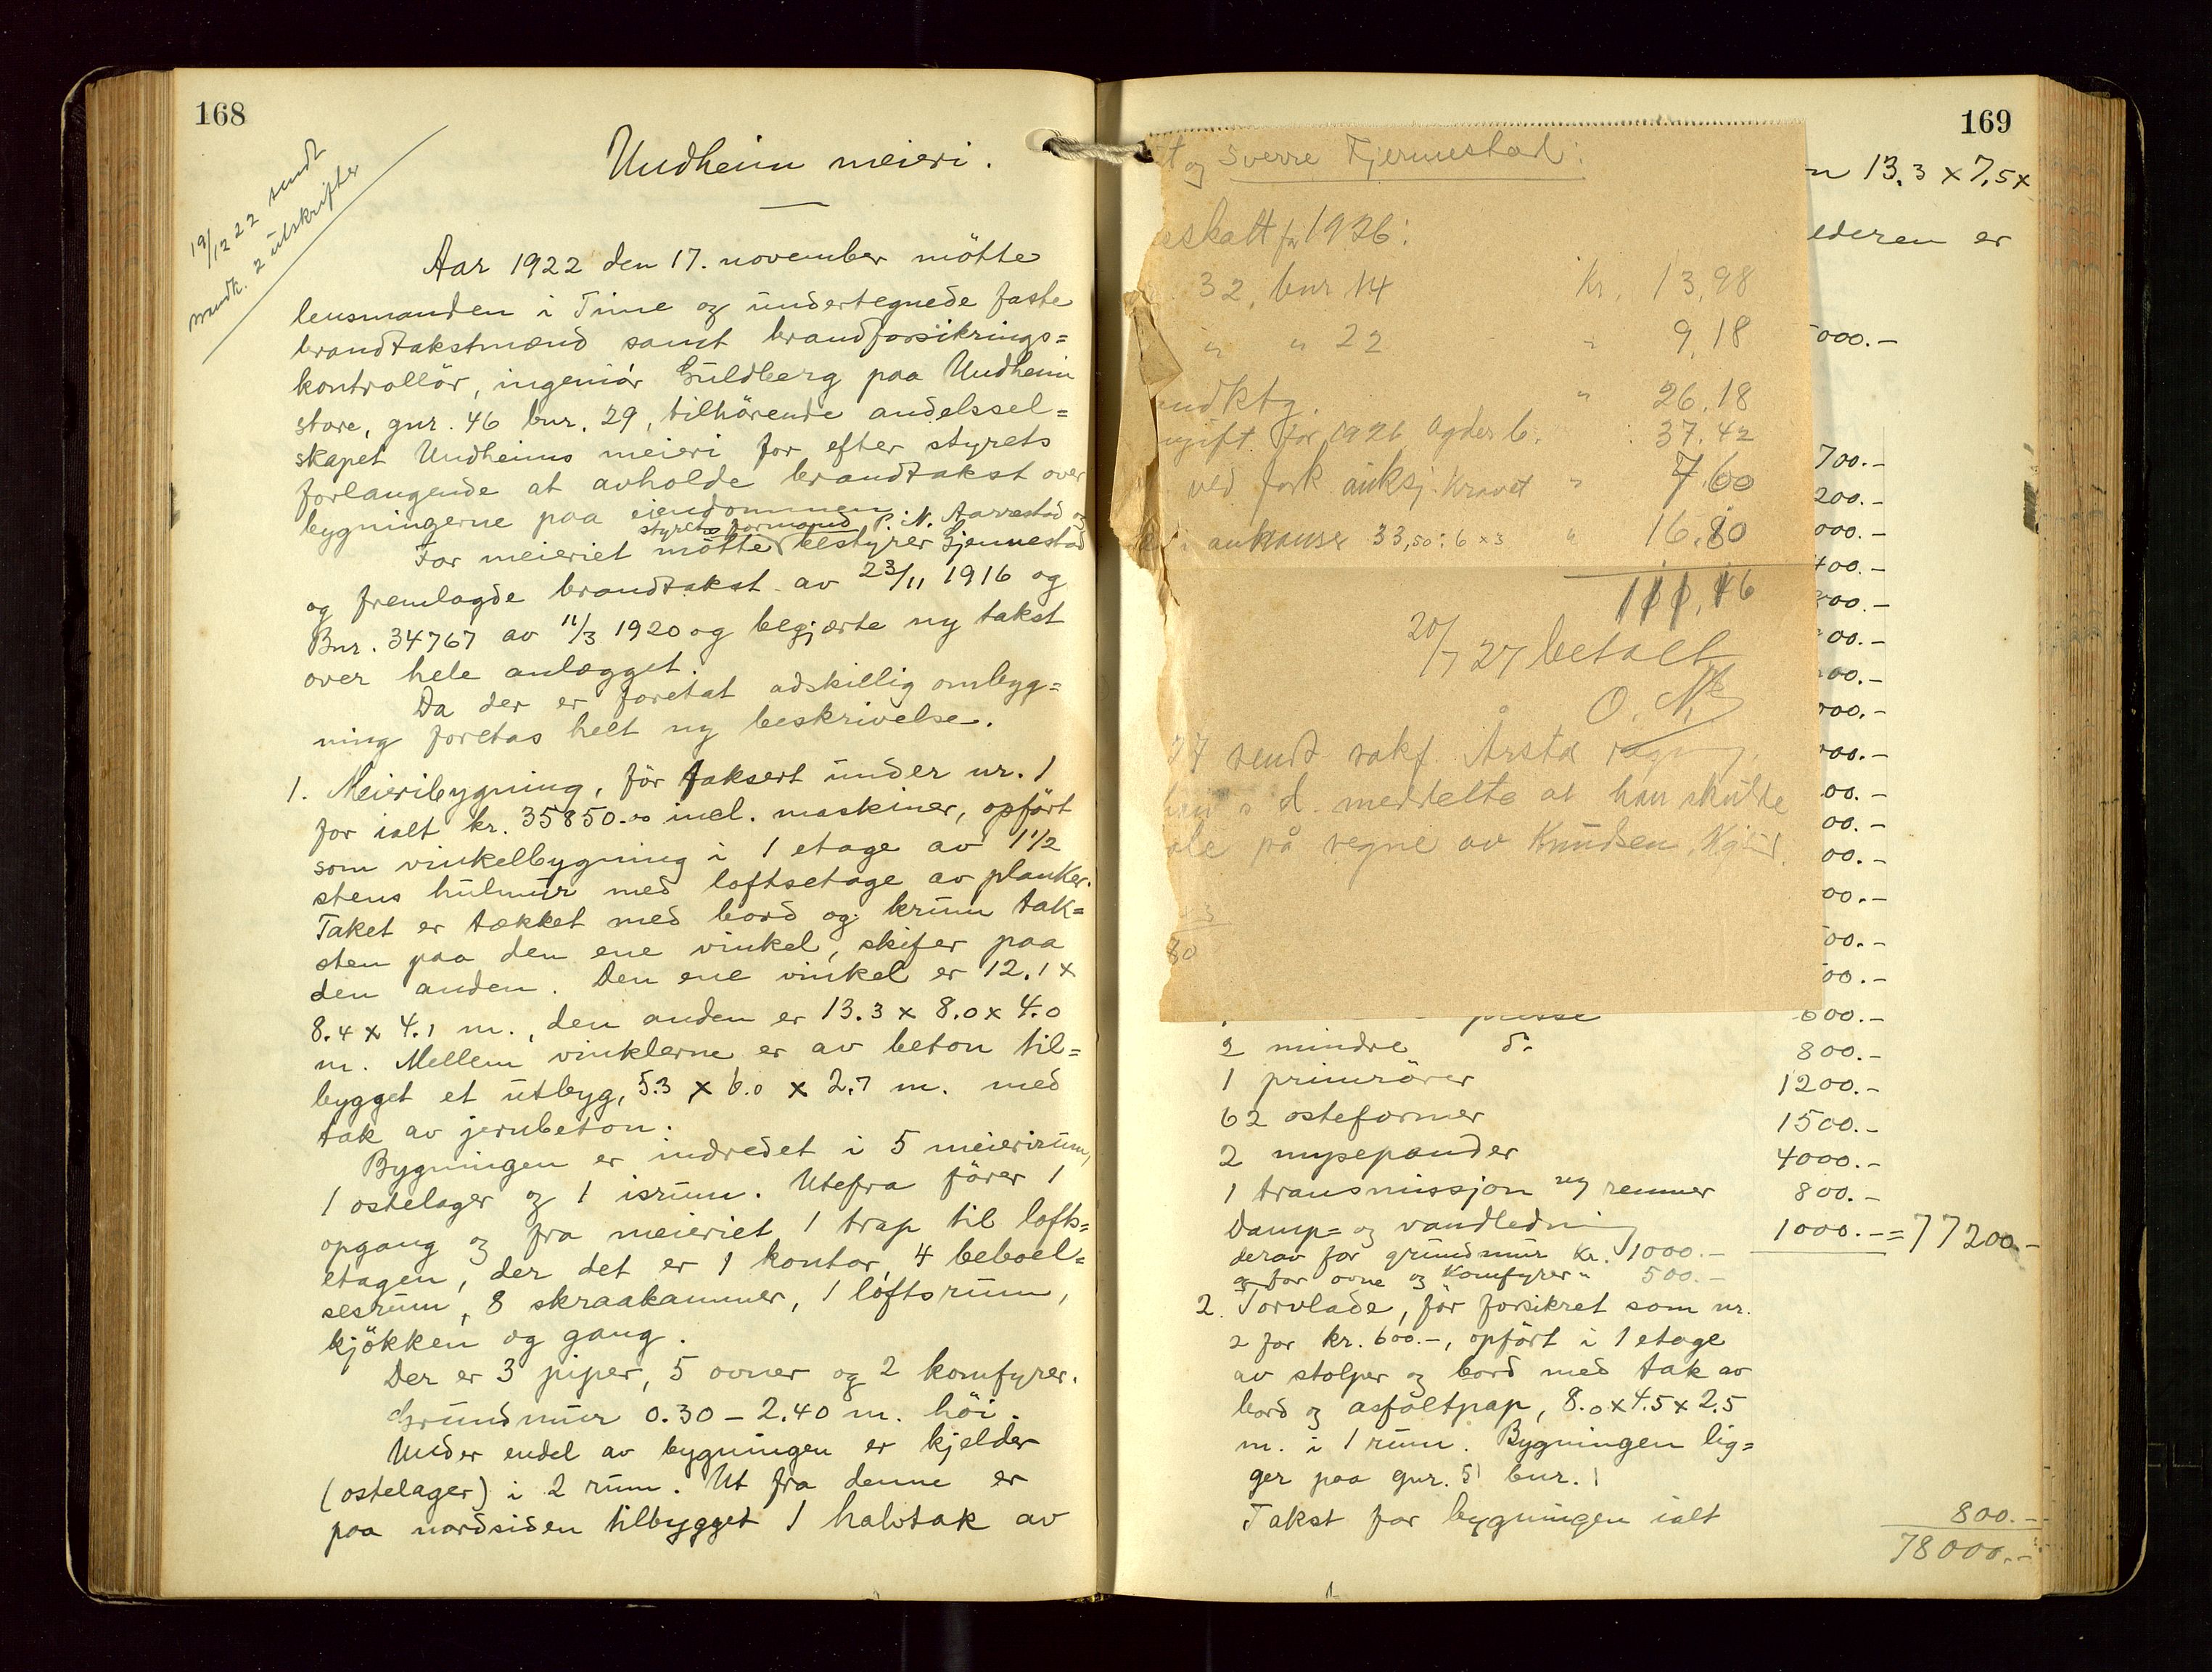 168
Undheim meieri.
19/12 22 sendt
brandk. 2 utskrifter
Aar 1922 den 17. november mötte
lensmanden i Time og undertegnede faste
brandtakstmænd samt brandforsikrings=
kontrollör, ingeniör Guldberg paa Undheim
store, gnr. 46 bnr. 29, tilhörende andelssel=
skapet Undheims meieri for efter styrets
forlangende at avholde brandtakst over
bygningerne paa eiendommen.
styrets formand P. N. Aarrestad og
For meieriet mötte bestyrer Gjennestad
og fremlagde brandtakst av 23/11 1916 og
Bnr. 34767 av 11/3 1920 og begjærte ny takst
over hele anlægget.
Da der er foretat adskillig ombyg=
ning foretas helt ny beskrivelse.
1. Meieribygning, för taksert under nr. 1
for ialt kr. 35850.00 incl. maskiner, opfört
som vinkelbygning i 1 etage av 1 1/2
stens hulmur med loftsetage av planker.
Taket er tækket med bord og krum tak=
sten paa den ene vinkel, skifer paa
den anden. Den ene vinkel er 12.1 x
8.4 x 4.1 m., den anden er 13.3 x 8.0 x 4.0
m. Mellem vinklerne er av beton til=
bygget et utbyg, 5.3 x 6.0 x 2.7 m. med
tak av jernbeton.
Bygningen er indredet i 5 meierirum,
1 ostelager og 1 isrum. Utefra förer 1
opgang og fra meieriet 1 trap til lofts=
etagen, der det er 1 kontor, 4 beboel=
sesrum, 8 skraakammer, 1 loftsrum,
kjökken og gang.
Der er 3 piper, 5 ovner og 2 komfyrer.
Grundmur 0.30 - 2.40 m. höi.
Under endel av bygningen er kjelder
(ostelager) i 2 rum. Ut fra denne er
paa nordsiden tilbygget 1 halvtak av
169
13.3 x 7.5 x
ederen er
000.-
700.-
200.-
000.-
400.-
00.-
00.-
00.-
00.-
00.-
00.-
00.-
00.-
00.-
00.-
00.-
og Sverre Fjermestad:
eskatt for 1926:
32, bnr 14 Kr. 13,98
" " 22 " 9,18
ndktg. " 26.18
gift for 1926 Agder b. 37.42
ved fork. auksj. kravet " 7.60
i aukauser 33,50: 6 x 3 " 16.80
111,16
20/7 27 betalt
O. N.
27 sendt sakf. Årstad regning.
s. d. meddelte at han skulde
ale på vegne av Knudsen,
80
presse 600.-
2 mindre do 800.-
1 primrörer 1200.-
62 osteformer 1500.-
2 mysepander 4000.-
1 transmissjon og remmer 800.-
Damp= og vandledning 1000.- = 77200.-
derav for grundmur kr. 1000.-
og for ovne og komfyrer " 500.-
2. Torvlade, för forsikret som nr.
2 for kr. 600.-, opfört i 1 etage
av stolper og bord med tak av
bord og asfaltpap, 8.0 x 4.5 x 2.5
m. i 1 rum. Bygningen lig=
ger paa gnr. 51 bnr. 1
Takst for bygningen ialt 800.-
78000.-